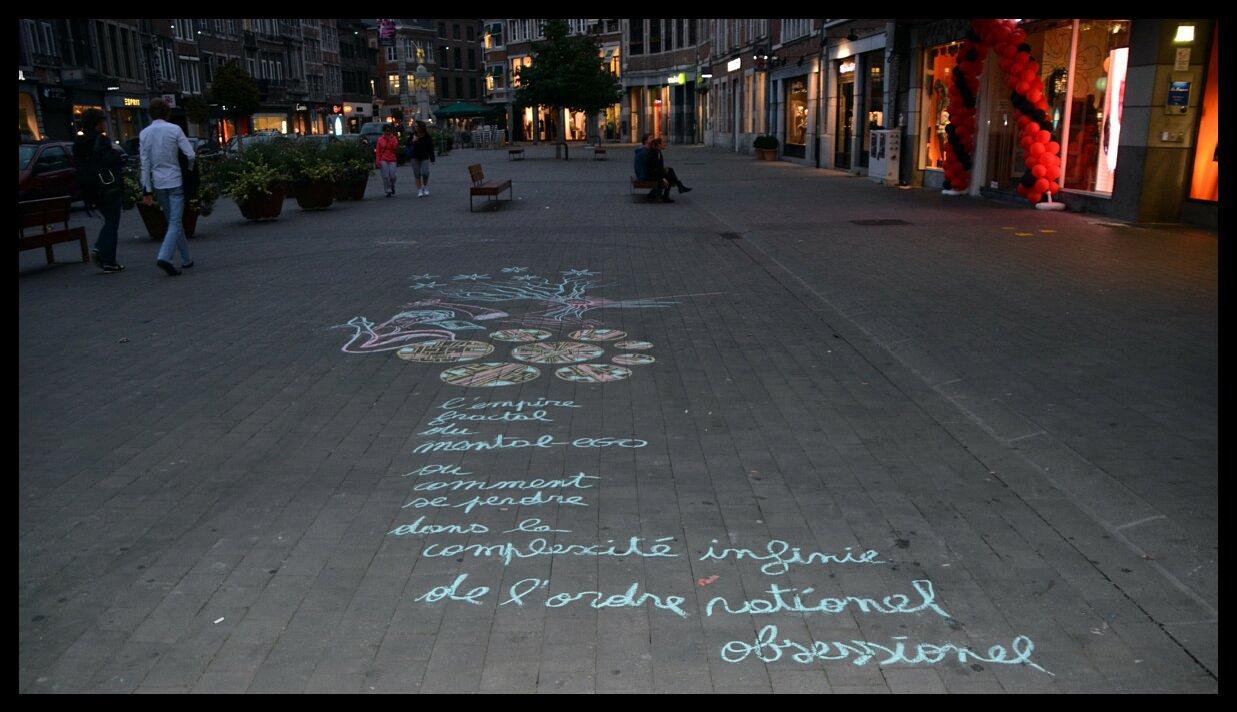 ESPRIT
l'empire
fractal
du
mental-EGO
ou
comment
se perdre
dans la
complexité infinie
de l'ordre rationel
obsessionel